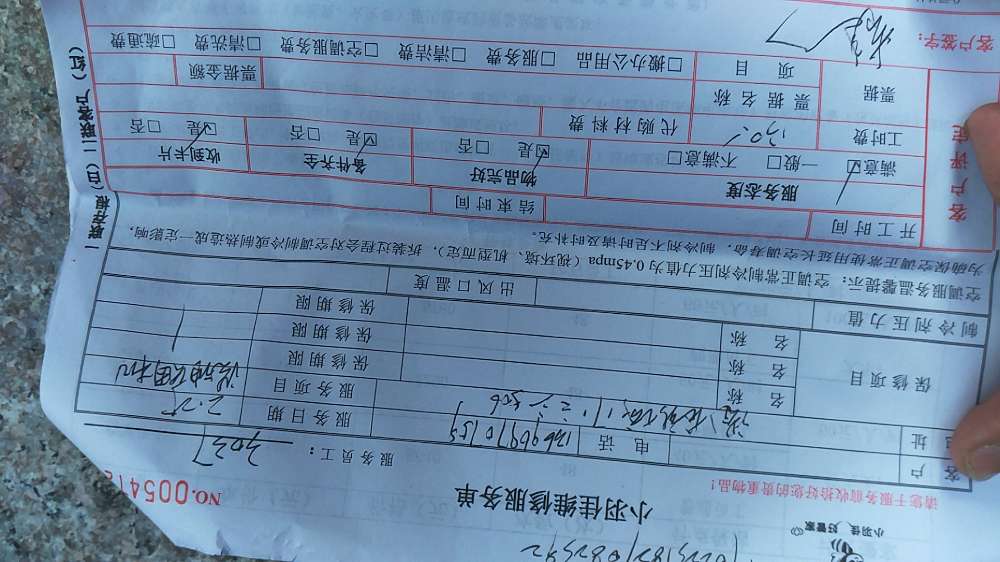 小羽佳，好管家
小羽佳维修服务单
请您于服务前收拾好您的贵重物品！
服务员工：3037
NO.005412
客户
电话
地址
服务日期 2.25
服务项目
保修项目
名称
保修期限
名称
保修期限
名称
保修期限
制冷剂压力值
出风口温度
空调服务温馨提示：空调正常制冷剂压力值为0.45mpa（视环境、机型而定），拆装过程会对空调制冷或制热造成一定影响，
为确保空调正常使用长延用寿命，制冷剂不足时请及时补充。
开工时间
结束时间
客户评定
服务态度
物品完好
备件齐全
收到卡片
☑满意 一般□ 不满意□
☑是 □否
☑是 □否
☑是 □否
工时费
130.
代购材料费
票据
票据名称
票据金额
项目
□搬办公用品 □服务费 □清洁费 □空调服务费 □清洗费 □疏通费
客户签字：
一联存根（白）二联客户（红）